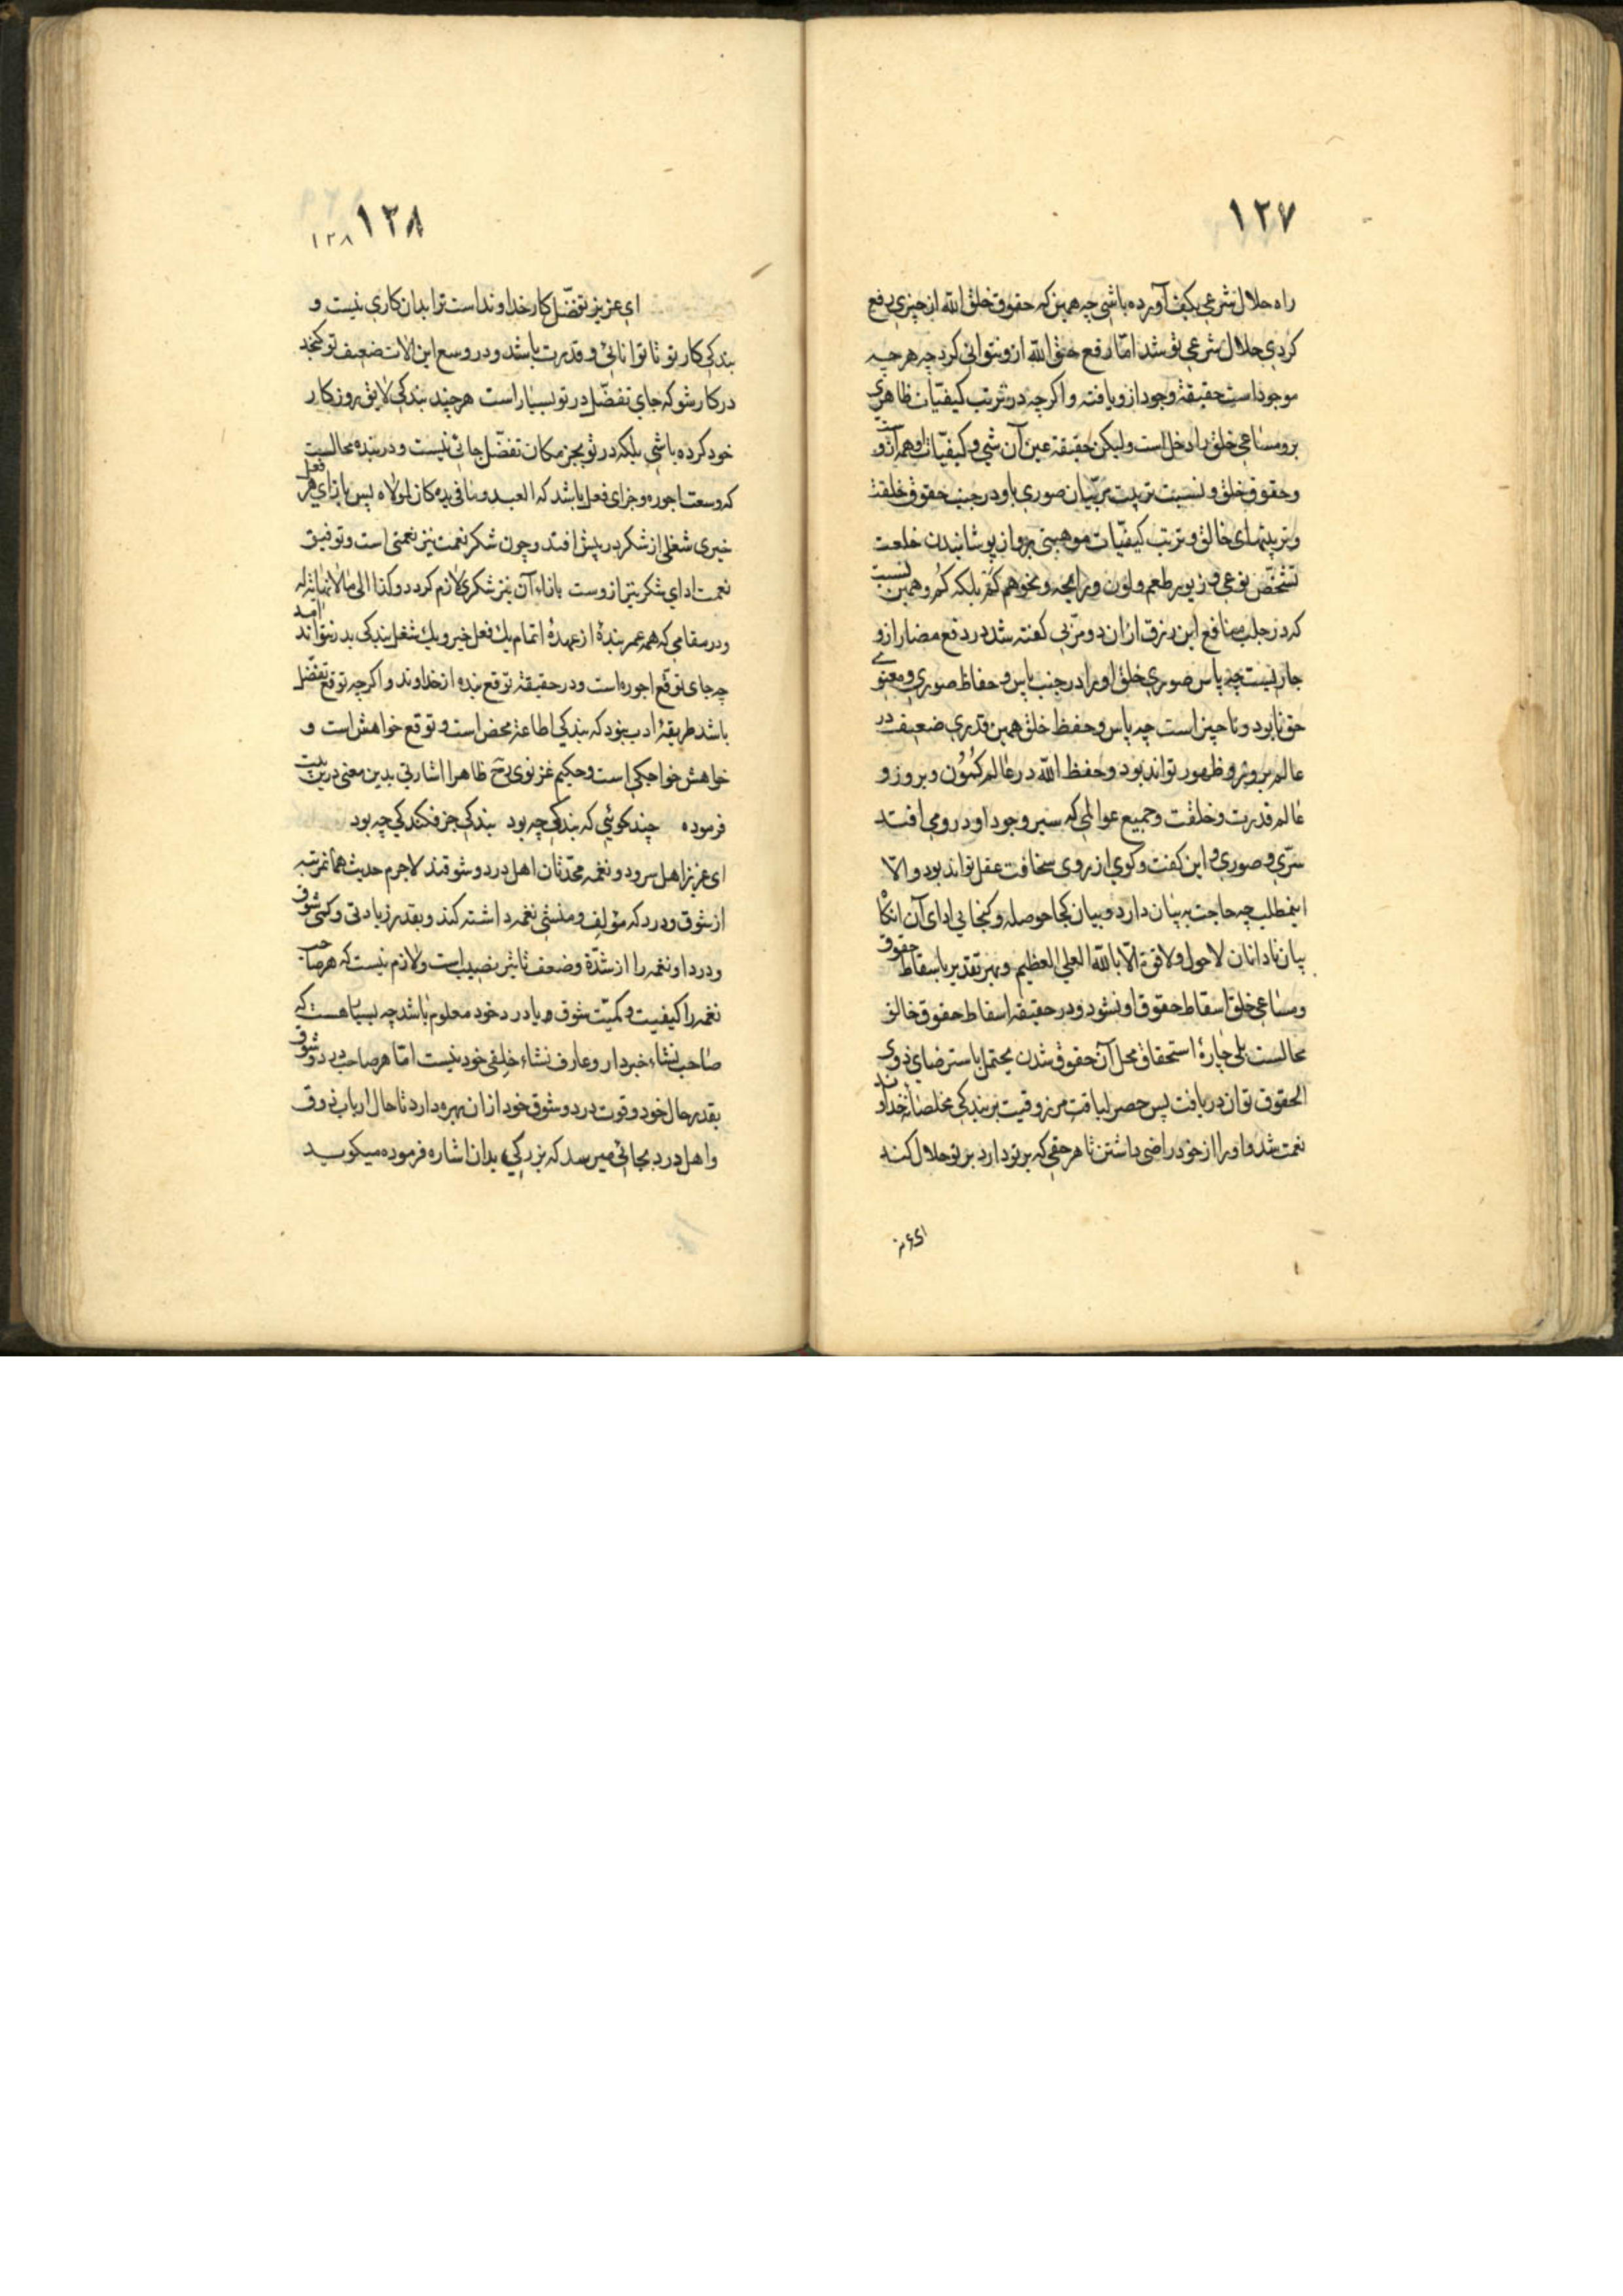 ١٢٧
راه حلال شرعی بکف آورده باشی چه همین که حقوق خلق الله از چیزی رفع
کردی حلال شرعی تو شد اما رفع حق الله ازو نتوانی کرد چه هر چه
موجود است حقیقة وجود ازو یافته و اگرچه در ترتب کیفیات ظاهری
برو مساعی خلق را دخل است ولیکن حقیقة عین آن شی و کیفیات او همه ازو
و حقوق خلق و نسبت تربیت مربیان صوری باو در جنب حقوق خلقت
و تربیتهای خالق و ترتب کیفیات موهبتی برو از پوشانیدن خلعت
تشخص نوعی و زیور طعم و لون و رایحه و نحوهم کم بلکه کم و همین نسبت
که در جلب منافع این رزق ازان دو مربی گفته شد در دفع مضار ازو
جاریست چه پاس صوری خلق او را در جنب پاس و حفاظ صوری و معنوی
حق نابود و ناچیز است چه پاس و حفظ خلق همین قدری ضعیف در
عالم بروز و ظهور تواند بود و حفظ الله در عالم کمون و بروز و
عالم قدرت و خلقت و جمیع عوالمی که سیر وجود او درو می افتد
سری و صوری و این گفت و گوی از روی سخافت عقل تواند بود و الا
اینمطلب چه حاجت به بیان دارد و بیان کجا حوصله و گنجایی ادای آن
بیان نادانان لا حول و لا قوة الا بالله العلی العظیم و بهر تقدیر باسقاط حقوق
و مساعی خلق اسقاط حقوق او نشود و در حقیقه اسقاط حقوق خالق
محالست بلی چارهٔ استحقاق محل آن حقوق شدن یحتمل باسترضای ذوی
الحقوق توان دریافت پس حصر لیاقت مرزوقیت بر بندگی مخلصانه خداوند
نعمت شد و او را از خود راضی داشتن تا هر حقی که بر تو دارد بر تو حلال کند
ای عزیز
١٢٨
١٢٨
ای عزیز تفضل کار خداوند است ترا بدان کاری نیست و
بندگی کار تو تا توانائی و قدرت باشد و در وسع این الات ضعیف تو گنجد
در کار شو که جای تفضل در تو بسیار است هر چند بندگی لایق روزگار
خود کرده باشی بلکه در تو بجز مکان تفضل جائی نیست و در بنده محالست
که وسعت اجوره و جزای فعل باشد که العبد و ما فی یده کان لمولاه پس بازای هر فعل
خیری شغلی از شکر در پیش افتد و چون شکر نعمت نیز نعمتی است و توفیق
نعمت ادای شکر نیز ازوست بازاء آن نیز شکری لازم گردد و کذا الی ما لا نهایة له
و در مقامی که همه عمر بندهٔ از عهدهٔ اتمام یك فعل خیر و یك شغل بندگی بدر نتواند آمد
چه جای توقع اجوره است و در حقیقة توقع بنده از خداوند و اگرچه توقع تفضل
باشد طریقهٔ ادب نبود که بندگی اطاعة محض است و توقع خواهش است و
خواهش خواجگی است و حکیم غزنوی رح ظاهرا اشارتی بدین معنی درین بیت
فرموده چند گوئی که بندگی چه بود بندگی جز فکندگی چه بود
ای عزیز اهل سرود و نغمه محدثان اهل درد و شوقند لاجرم حدیث همانمرتبه
از شوق و درد که مؤلف و منشی نغمه داشته کند و بقدر زیادتی و کمی شوق
و درد او نغمه را از شدة و ضعف تاثیر نصیب است و لازم نیست که هر صاحب
نغمه را کیفیت و کمیت شوق و یا درد خود معلوم باشد چه بسیا هست که
صاحب نشاء خبردار و عارف نشاء خلقی خود نیست اما هر صاحب درد و شوق
بقدر حال خود و قوت درد و شوق خود ازان بهره دارد تا حال ارباب ذوق
و اهل درد بجائی میرسد که بزرگی بدان اشاره فرموده میگوید